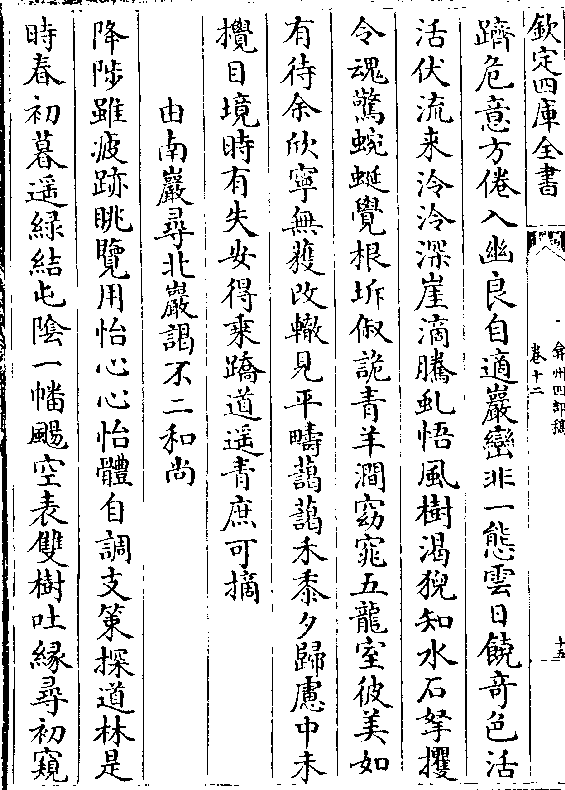 欽定四庫全書
弇州四部稿
卷十二
十五
躋危意方倦入幽良自適巖巒非一態雲日饒奇色活
活伏流来泠泠深崖滴騰虬悟風樹渴猊知水石拏攫
令魂驚蜿蜒覺根坼俶詭青羊澗窈窕五龍室彼美如
有待余欣寧無獲改轍見平疇藹藹禾黍夕歸慮中未
攪目境時有失安得乗蹻道遥青庶可摘
由南巖尋北巖謁不二和尚
降陟雖疲跡眺覽用怡心心怡體自調支策探道林是
時春初暮遥緑結屯隂一幡颺空表雙樹吐縁尋初窺